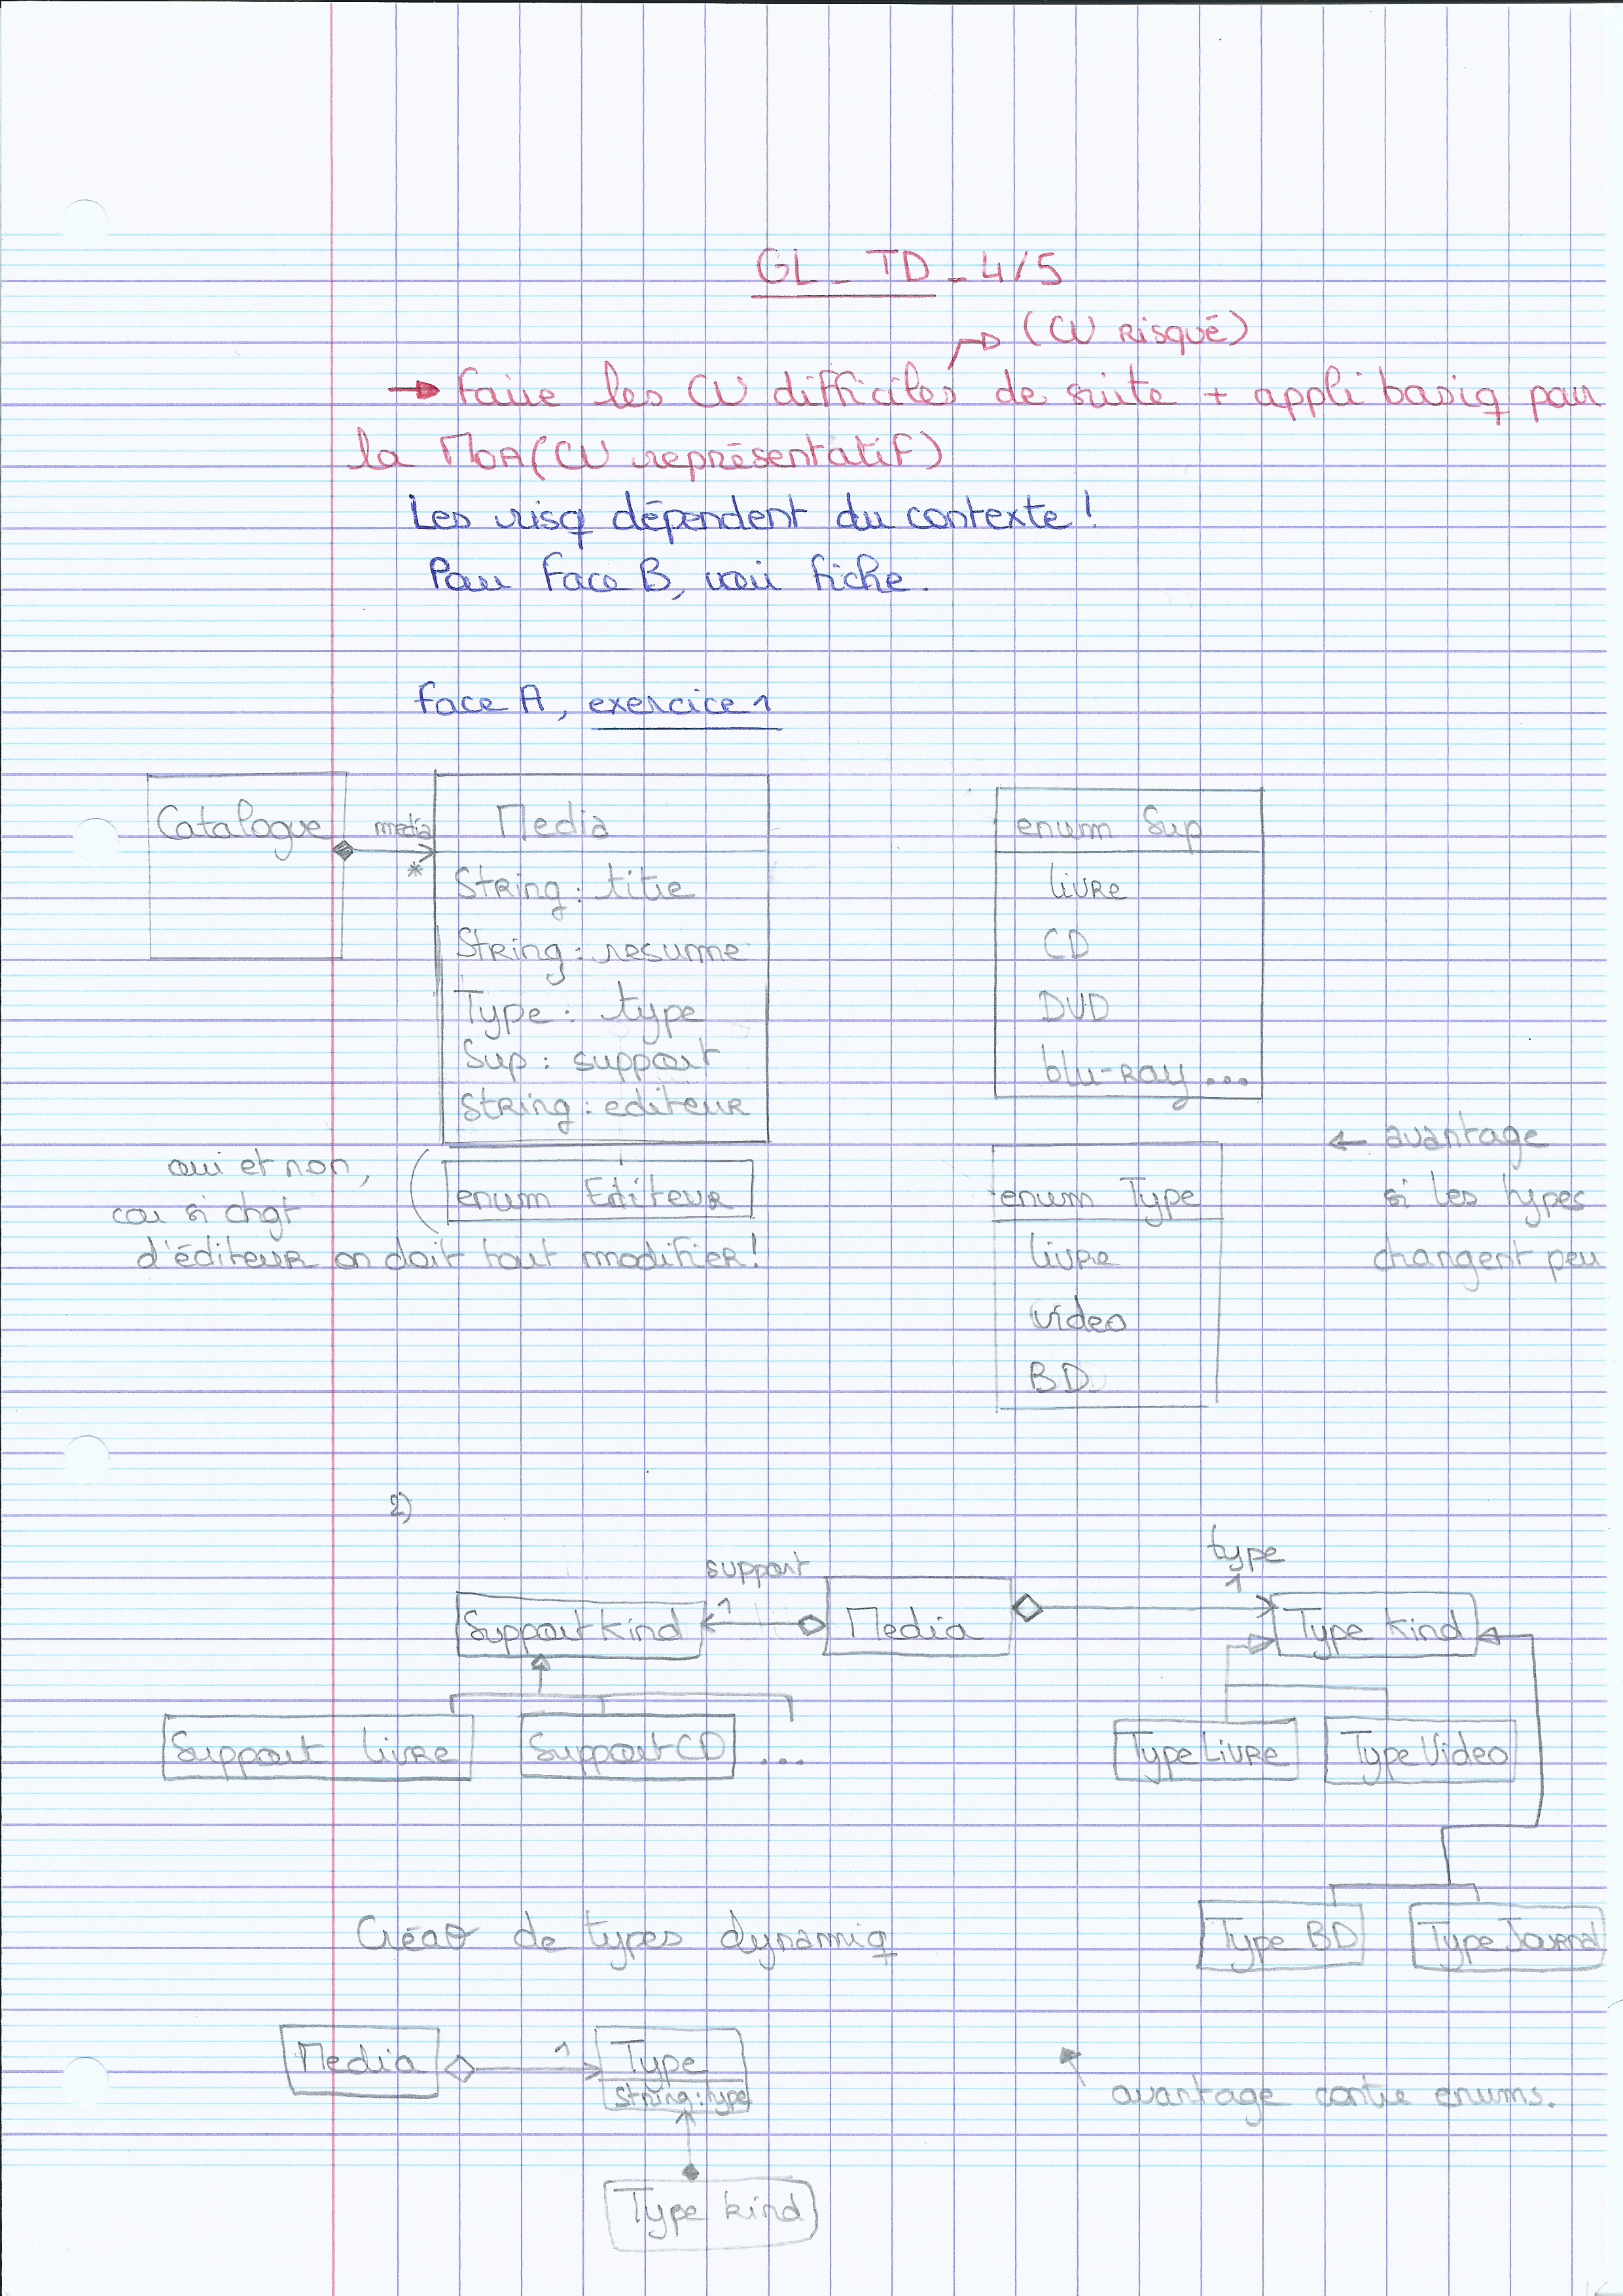 GL - TD - 4/5
(CU risqué)
→ Faire les CU difficiles de suite + appli basiq pour
la MOA (CU représentatif)
Les risq dépendent du contexte !
Pour face B, voir fiche.
Face A, exercice 1
Catalogue
media
*
Media
String : titre
String : resume
Type : type
Sup : support
String : editeur
enum Sup
livre
CD
DVD
blu-ray ...
oui et non,
car si chgt
d'éditeur on doit tout modifier !
( enum Editeur
enum Type
livre
video
BD
← avantage
si les types
changent peu
2)
support
1
type
1
Support kind
Media
Type kind
Support livre
Support CD
...
Type Livre
Type Video
Type BD
Type Journal
Créaθ de types dynamiq
Media
1
Type
String : type
Type kind
avantage contre enums.